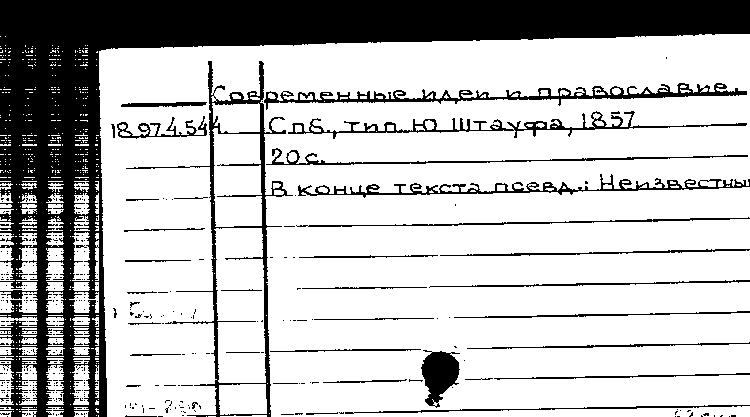 Современные идеи и православие.
18.974.544. Спб., тип. Ю. Штауфа, 1857
20 с.
В конце текста псевд.: Неизвестный